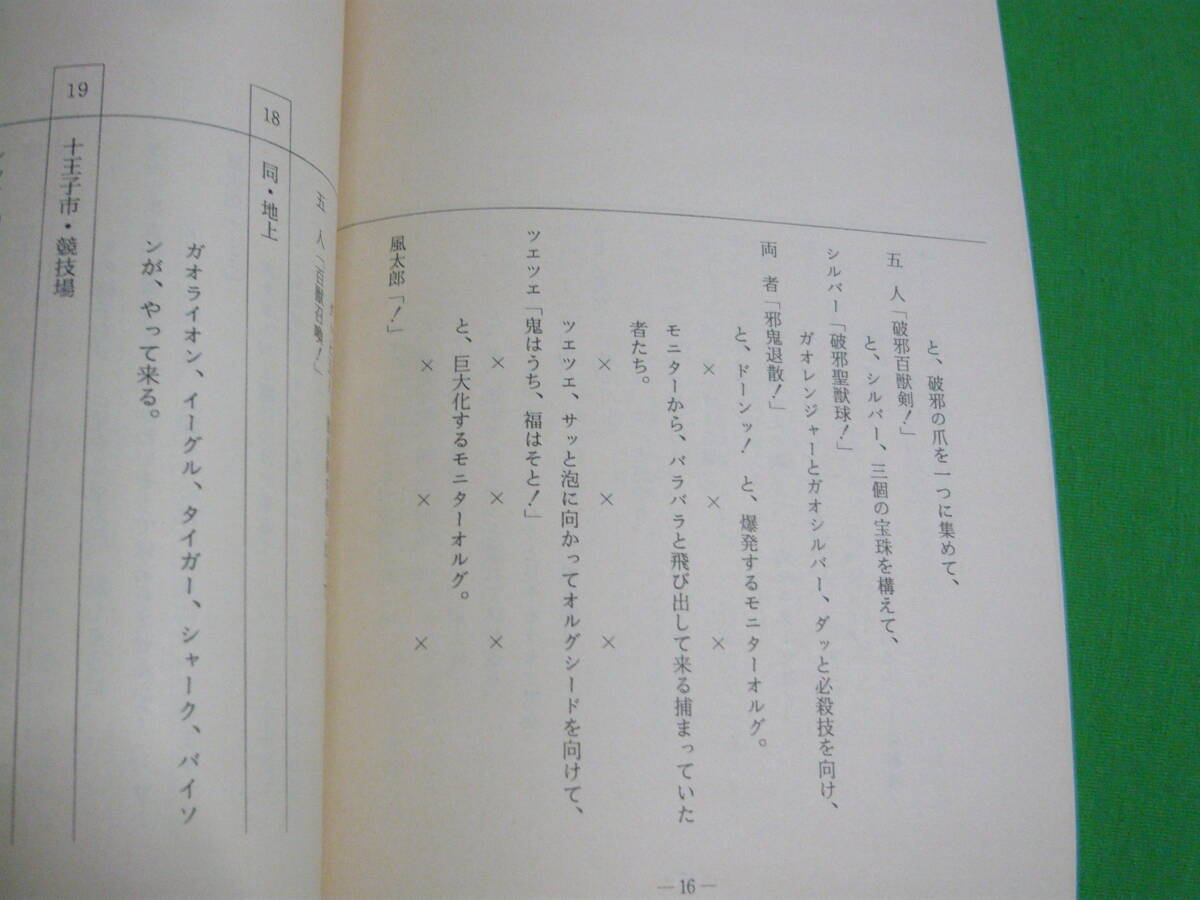 と、破邪の爪を一つに集めて、
五　人「破邪百獣剣！」
と、シルバー、三個の宝珠を構えて、
シルバー「破邪聖獣球！」
ガオレンジャーとガオシルバー、ダッと必殺技を向け、
両　者「邪鬼退散！」
と、ドーンッ！　と、爆発するモニターオルグ。
×　×　×
モニターから、バラバラと飛び出して来る捕まっていた
者たち。
×　×　×
ツエツエ、サッと泡に向かってオルグシードを向けて、
ツエツエ「鬼はうち、福はそと！」
×　×　×
と、巨大化するモニターオルグ。
×　×　×
風太郎「！」
―16―
五　人「百獣召喚！」
18　同・地上
ガオライオン、イーグル、タイガー、シャーク、バイソ
ンが、やって来る。
19　十王子市・競技場